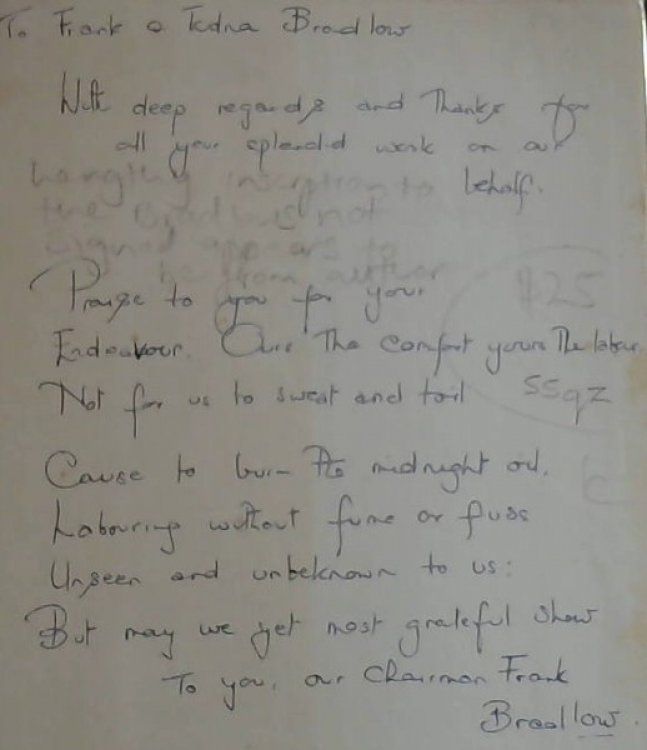 To Frank & Edna Bradlow
With deep regards and Thanks for
all your splendid work on our
behalf.
hanging inscription to
the Bradlows not
signed appears to
be from author
Praise to you for your
$25
Endeavour. Ours The comfort yours The labour
Not for us to sweat and toil
SSqz
Cause to burn The midnight oil.
Labouring without fume or fuss
Unseen and unbeknown to us:
But may we yet most grateful show
To you, our Chairman Frank
Bradlow.